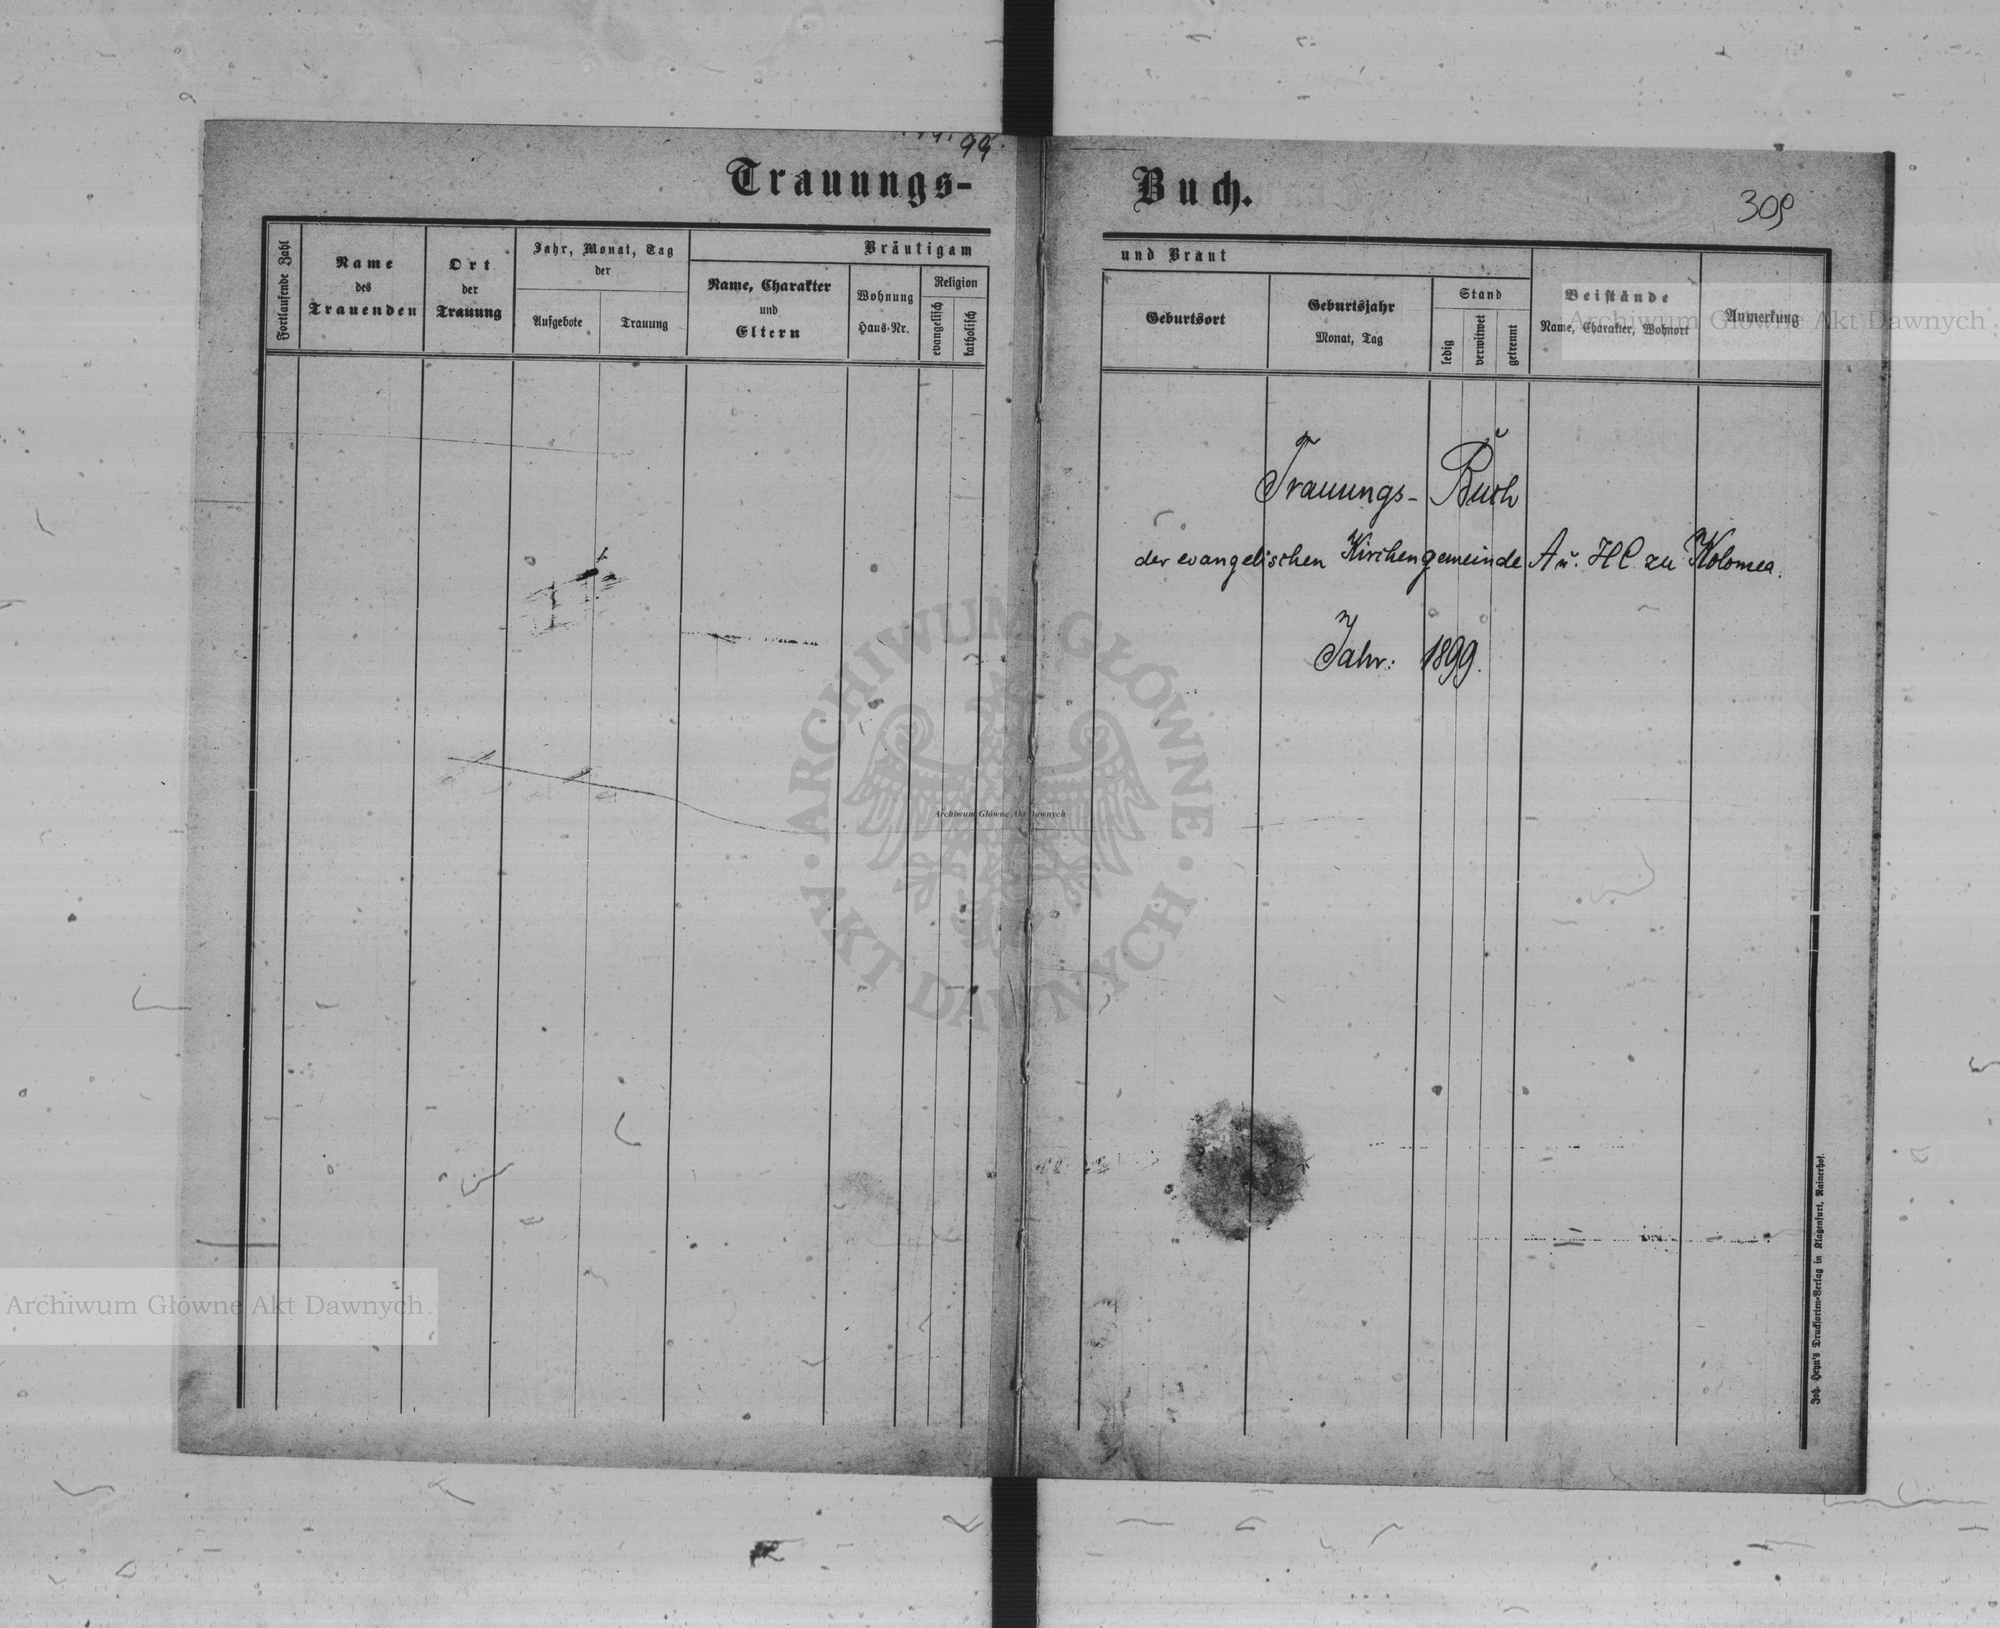 99.
Trauungs-
Buch.
309
Fortlaufende Zahl
Name
des
Trauenden
Ort
der
Trauung
Jahr, Monat, Tag
der
Aufgebote
Trauung
Bräutigam
Name, Charakter
und
Eltern
Wohnung
Haus-Nr.
Religion
evangelisch
katholisch
und Braut
Geburtsort
Geburtsjahr
Monat, Tag
Stand
ledig
verwitwet
getrennt
Beistände
Name, Charakter, Wohnort
Anmerkung
Archiwum Główne Akt Dawnych
Trauungs- Buch
der evangelischen Kirchengemeinde A u. HC zu Kolomea.
Jahr: 1899.
ARCHIWUM GŁÓWNE
AKT DAWNYCH
Archiwum Główne Akt Dawnych
Archiwum Główne Akt Dawnych
Joh. Heyn's Drucksorten-Verlag in Klagenfurt, Rainerhof.